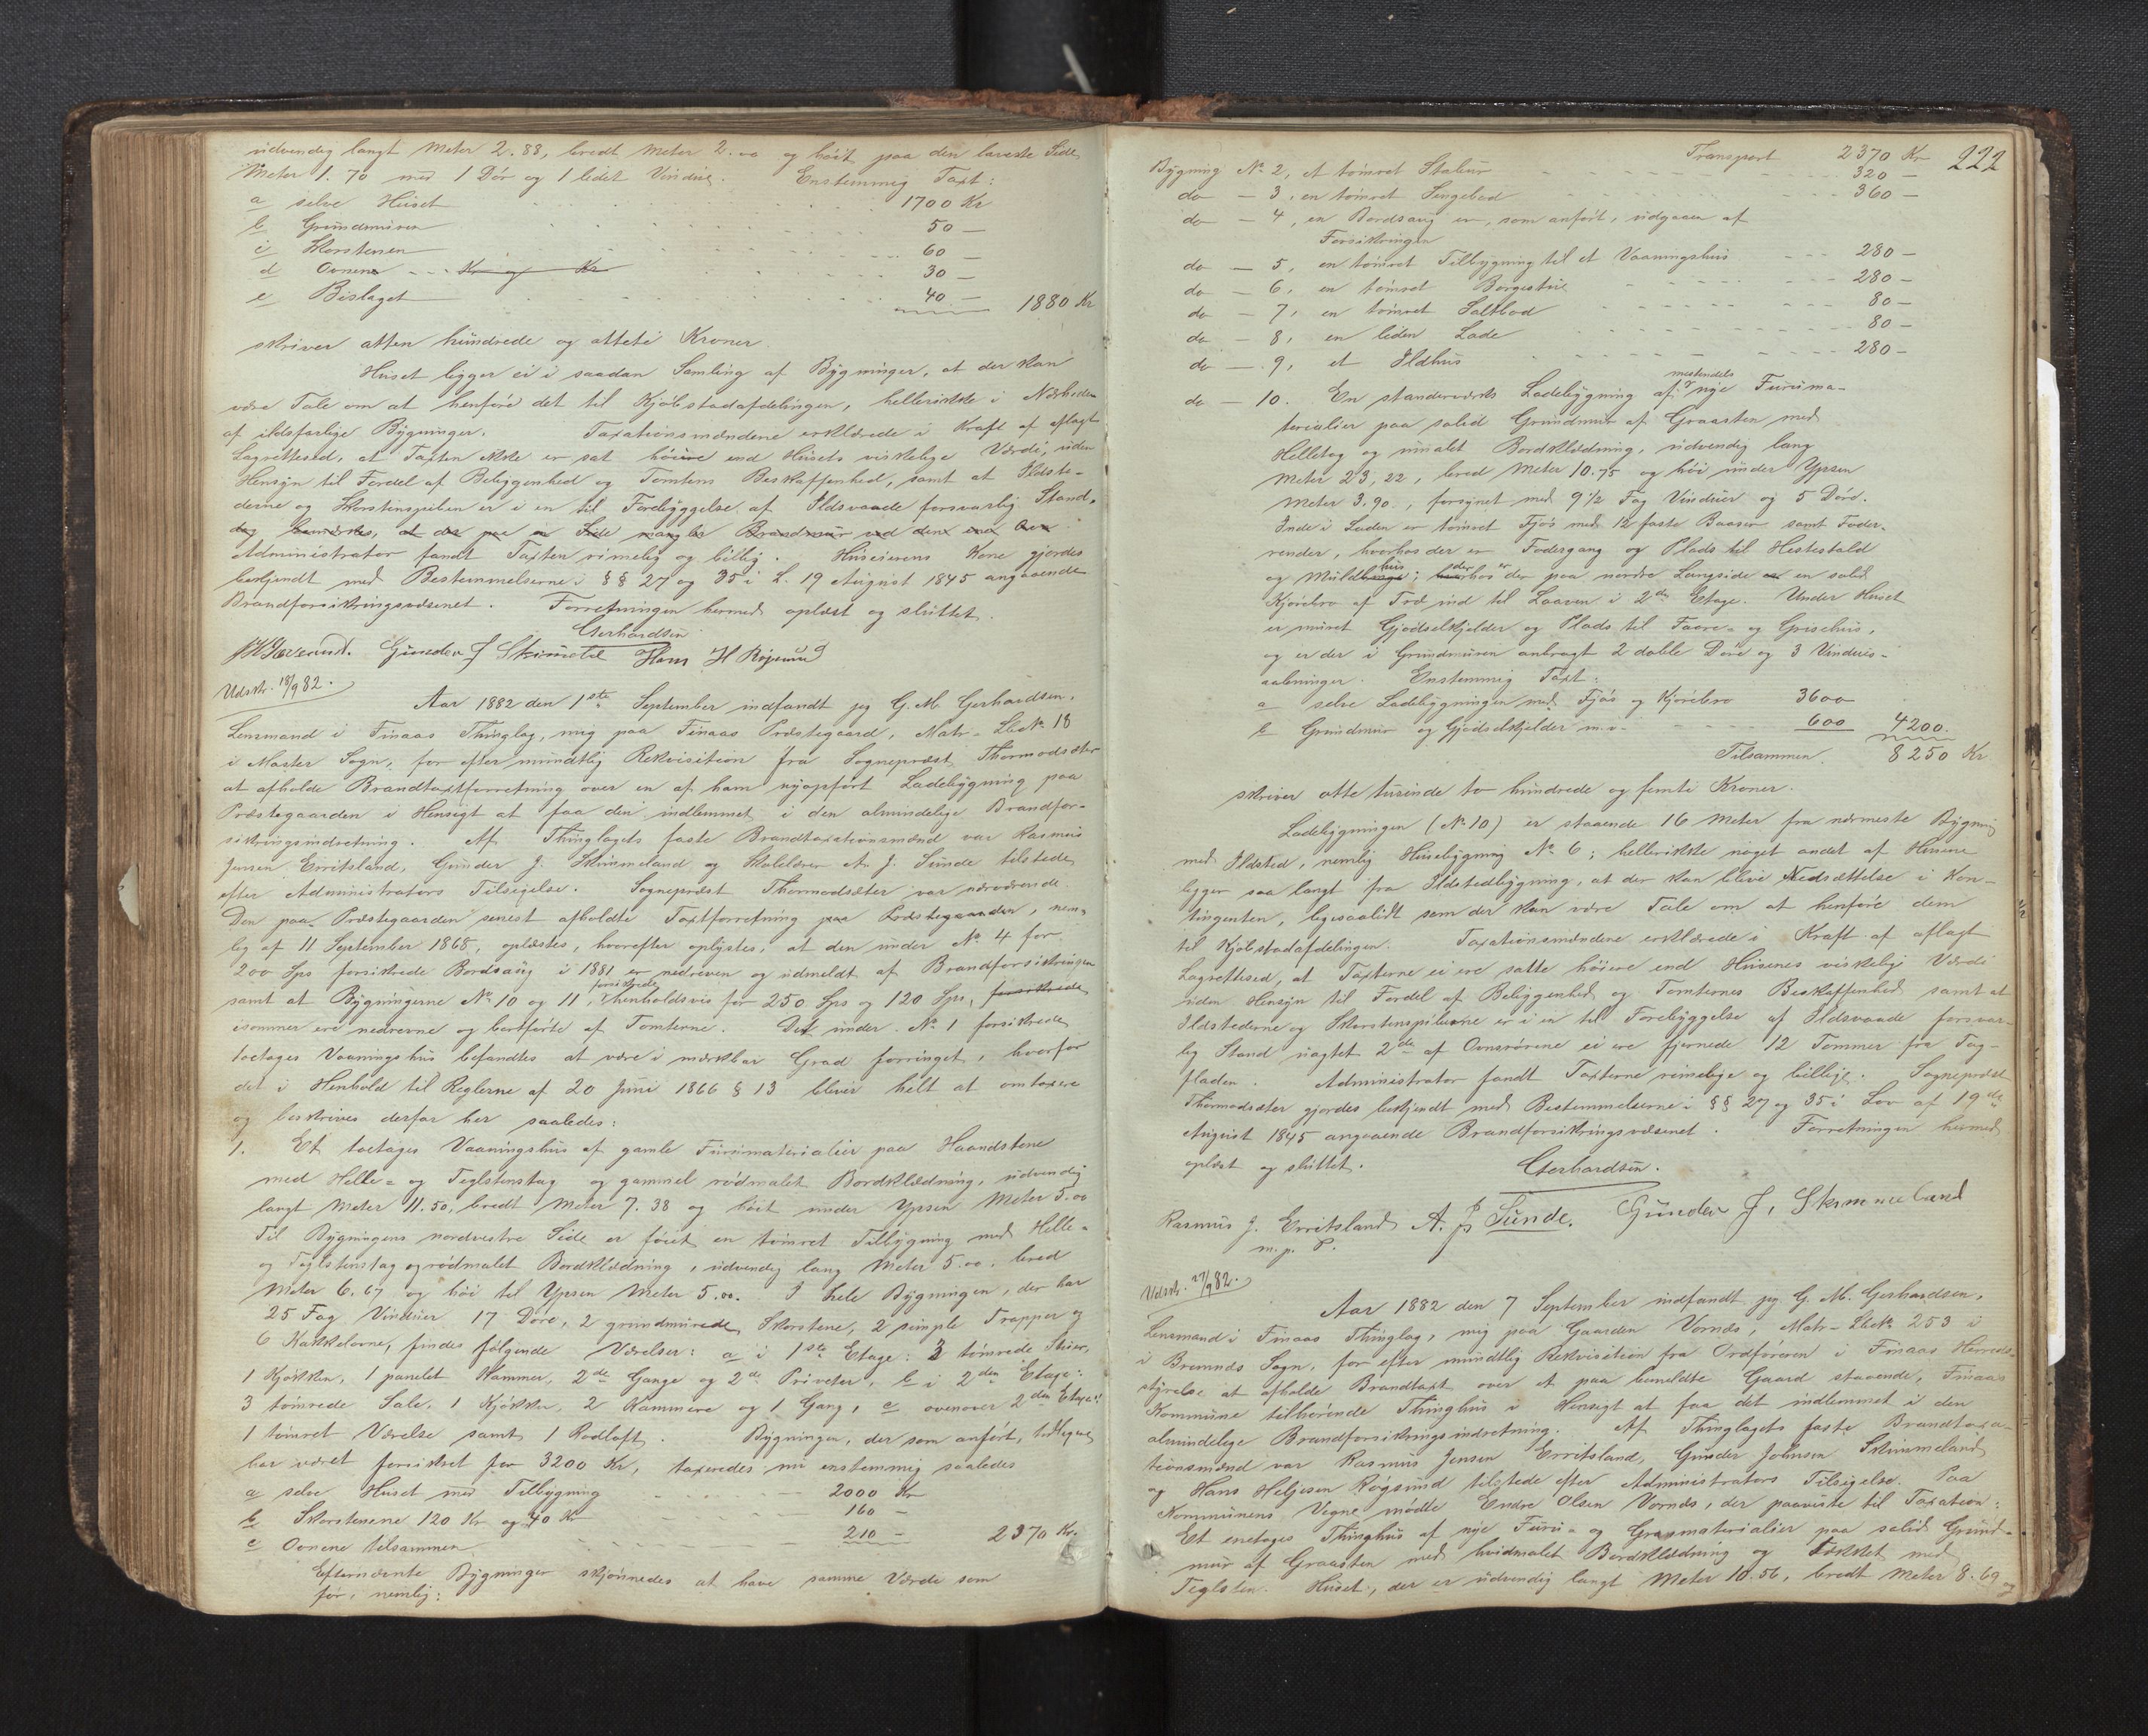 udvendig langt Meter 2.88, bredt Meter 2.00 og höit paa den laveste Side
Meter 1.70 med 1 Dör og 1 ledet Vindue. Enstemmig Taxt:
a selve Huset 1700 Kr
b Grundmuren 50 —
c Skorstenen 60 —
d Ovnene Kr og Kr 30 —
e Bislaget 40 — 1880 Kr
skriver atten hundrede og otteti Kroner.
Huset ligger ei i saadan Samling af Bygninger, at der kan
være Tale om at henföre det til Kjöbstadafdelingen, hellerikke i Nærheden
af ildsfarlige Bygninger. Taxationsmændene erklærede i Kraft af aflagt
Lagrettesed, at Taxten ikke er sat höiere end Husets virkelige Værdi, uden
Hensyn til Fordel af Beliggenhed og Tomtens Beskaffenhed, samt at Ildste-
derne og Skorstenspiben er i en til Forebyggelse af Ildsvaade forsvarlig Stand,
dog bemærkes, at der paa en Side mangler Brandmuur ved den ene Ovn.
Administrator fandt Taxten rimelig og billig. Huseierens Kone gjordes
bekjendt med Bestemmelserne i §§ 27 og 35 i L. 19 August 1845 angaaende
Brandforsikringsvæsenet. Forretningen hermed oplæst og sluttet.
Gerhardsen
Gunder J Skimeland Hans H Rögsund
Udskr. 18/9 82.
Aar 1882 den 1ste September indfandt jeg G. M. Gerhardsen,
Lensmand i Finaas Thinglag, mig paa Finaas Præstegaard, Matr-LbeNo 18
i Moster Sogn, for efter mundtlig Rekvisition fra Sogneprest Thormodsæter
at afholde Brandtaxtforretning over en af ham nyopfört Ladebygning paa
Præstegaarden i Hensigt at faa den indlemmet i den almindelige Brandfor-
sikringsindretning. Af Thinglagets faste Brandtaxationsmænd var Rasmus
Jensen Erritsland, Gunder J. Skimmeland og Skolelærer A. J. Sunde tilstede
efter Administrators Tilsigelse. Sogneprest Thormodsæter var nærværende.
Den paa Præstegaarden senest afholdte Taxtforretning paa Præstegaarden, nem-
lig af 11 September 1868, oplæstes, hvorefter oplystes, at den under No 4 for
200 Sps forsikrede Bordsaug i 1881 er nedreven og udmeldt af Brandforsikringen
samt at Bygningerne No 10 og 11, forsikrede henholdsvis for 250 Sps og 120 Sps, forsikrede
isommer ere nedrevne og bortförte af Tomterne. Det under No 1 forsikrede
toetages Vaaningshus befandtes at være i mærkbar Grad forringet, hvorfor
det i Henhold til Reglerne af 20 Juni 1866 § 13 blever helt at omtaxere
og beskrives derfor her saaledes:
1. Et toetages Vaaningshus af gamle Furumaterialier paa Haandstene
med Helle- og Teglstenstag og gammel rödmalet Bordklædning, udvendig
langt Meter 11.50, bredt Meter 7.38 og höit under Ypsen Meter 5.00
Til Bygningens nordvestre Side er föiet en tömret Tilbygning med Helle-
og Teglstenstag og rödmalet Bordklædning, udvendig lang Meter 5.00, bred
Meter 6.67 og höi til Ypsen Meter 5.00. I hele Bygningen, der har
25 Fag Vinduer, 17 Döre, 2 grundmurede Skorstene, 2 simple Trapper og
6 Kakkelovne, findes fölgende Værelser: a i 1ste Etage: 3 tömrede Stuer,
1 Kjökken, 1 panelet Kammer, 2de Gange og 2de Priveter, b i 2den Etage:
3 tömrede Sale, 1 Kjökken, 2 Kammere og 1 Gang, c ovenover 2den Etage:
1 tömret Værelse samt 1 Rodloft. Bygningen, der som anfört, tidligere
har været forsikret for 3200 Kr, taxeredes nu enstemmig saaledes
a selve Huset med Tilbygning 2000 Kr
b Skorstenene 120 Kr og 40 Kr 160 —
c Ovnene tilsammen 210 — 2370 Kr.
Efternævnte Bygninger skjönnedes at have samme Værdi som
för, nemlig:
222
Transport 2370 Kr
Bygning No 2, et tömret Stabur 320 —
do — 3, en tömret Sengebod 360 —
do — 4, en Bordsaug er, som anfört, udgaaen af
Forsikringen
do — 5, en tömret Tilbygning til et Vaaningshus 280 —
do — 6, en tömret Borgestue 280 —
do — 7, en tömret Saltbod 80 —
do — 8, en liden Lade 80 —
do — 9, et Ildhus 280 —
do — 10. En standerværks Ladebygning af mestendels nye Furuma-
terialier paa solid Grundmur af Graasten med
Helletag og umalet Bordklædning, udvendig lang
Meter 23,22, bred Meter 10.75 og höi under Ypsen
Meter 3.90, forsynet med 9 1/2 Fag Vinduer og 5 Döre.
Inde i Laden er tömret Fjös med 12 faste Baaser samt Foder-
render, hvorhos der er Fodergang og Plads til Hestestald
og Muldhus; der er der paa nordre Langside en solid
Kjörebro af Træ ind til Laaven i 2den Etage. Under Huset
er muret Gjödselkjelder og Plads til Faare- og Grisehus,
og er der i Grundmuren anbragt 2 doble Döre og 3 Vindues-
aabninger. Enstemmig Taxt:
a selve Ladebygningen med Fjös og Kjörebro 3600
b Grundmur og Gjödselkjelder m.v. 600 4200.
Tilsammen 8250 Kr
skriver otte tusinde to hundrede og femti Kroner.
Ladebygningen (No 10) er staaende 16 Meter fra nærmeste Bygning
med Ildsted, nemlig Husebygning No 6; hellerikke noget andet af Husene
ligger saa langt fra Ildstedbygning, at der kan blive Nedsættelse i Kon-
tingenten, ligesaalidt som der kan være Tale om at henföre dem
til Kjöbstadafdelingen. Taxationsmændene erklærede i Kraft af aflagt
Lagrettesed, at Taxterne ei ere satte höiere end Husenes virkelige Værdi
uden Hensyn til Fordel af Beliggenhed og Tomternes Beskaffenhed samt at
Ildstederne og Skorstenspiberne er i en til Forebyggelse af Ildsvaade forsvar-
lig Stand uagtet 2de af Ovnsrörene ei ere fjernede 12 Tommer fra Tag-
fladen. Administrator fandt Taxterne rimelige og billige. Sogneprest
Thormodsæter gjordes bekjendt med Bestemmelserne i §§ 27 og 35 i Lov af 19de
August 1845 angaaende Brandforsikringsvæsenet. Forretningen hermed
oplæst og sluttet. Gerhardsen.
Rasmus J. Erritsland A. J. Sunde. Gunder J. Skimmeland
m. p. P.
Udskr. 27/9 82.
Aar 1882 den 7 September indfandt jeg G. M. Gerhardsen,
Lensmand i Finaas Thinglag, mig paa Gaarden Vornæs, Matr-LbeNo 253 i
i Bremnæs Sogn, for efter mundtlig Rekvisition fra Ordföreren i Finaas Herreds-
styrelse at afholde Brandtaxt over et paa bemeldte Gaard staaende, Finaas
Kommune tilhörende Thinghus i Hensigt at faa det indlemmet i den
almindelige Brandforsikringsindretning. Af Thinglagets faste Brandtaxa-
tionsmænd var Rasmus Jensen Erritsland, Gunder Johnsen Skimmeland
og Hans Heljesen Rögsund tilstede efter Administrators Tilsigelse. Paa
Kommunens Vegne mödte Endre Olsen Vornæs, der paaviste til Taxation:
Et enetages Thinghus af nye Furu- og Granmaterialier paa solid Grund-
mur af Graasten med hvidmalet Bordklædning og tækket med
Teglsten. Huset, der er udvendig langt Meter 10.56, bredt Meter 8.69 og